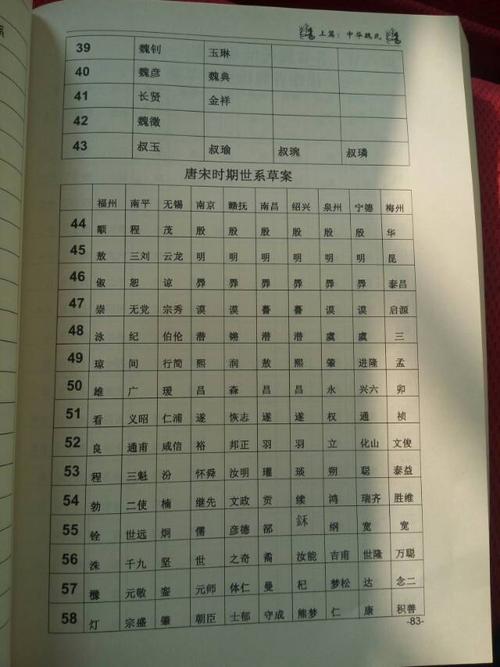 上篇：中华魏氏
39 魏钊 玉琳
40 魏彦 魏典
41 长贤 金祥
42 魏徵
43 叔玉 叔瑜 叔琬 叔璘
唐宋时期世系草案
福州 南平 无锡 南京 赣抚 南昌 绍兴 泉州 宁德 梅州
44 顺 程 茂 殷 殷 殷 殷 殷 殷 华
45 敖 三刘 云龙 明 明 明 明 明 明 昆
46 俶 恕 谅 羿 羿 羿 羿 羿 羿 泰昌
47 崇 无党 宗秀 谟 谟 謩 謩 谟 谟 启源
48 泳 纪 伯伦 潜 锵 潜 潜 虞 虞 三
49 琼 间 行简 熙 润 敖 熙 肇 进隆 孟
50 雄 广 瑷 昌 森 昌 昌 永 兴六 卯
51 看 义昭 仁浦 遂 恢志 遂 遂 权 通 祯
52 良 通甫 咸信 裕 邦正 羽 羽 立 化山 文俊
53 程 三魁 汾 怀舜 汝明 瓘 琰 朔 聪 泰益
54 勃 二使 楠 继先 文政 贡 续 鸿 瑞齐 胜维
55 铨 世远 炯 儒 彦德 部 稣 纲 宽 宽
56 洙 千九 坚 世 之奇 矞 汝能 吉甫 世隆 万聪
57 櫞 元敬 銮 元师 体仁 曼 杞 梦松 达 念二
58 灯 宗盛 肇 朝臣 士郁 守成 熊梦 仁 康 积善
-83-